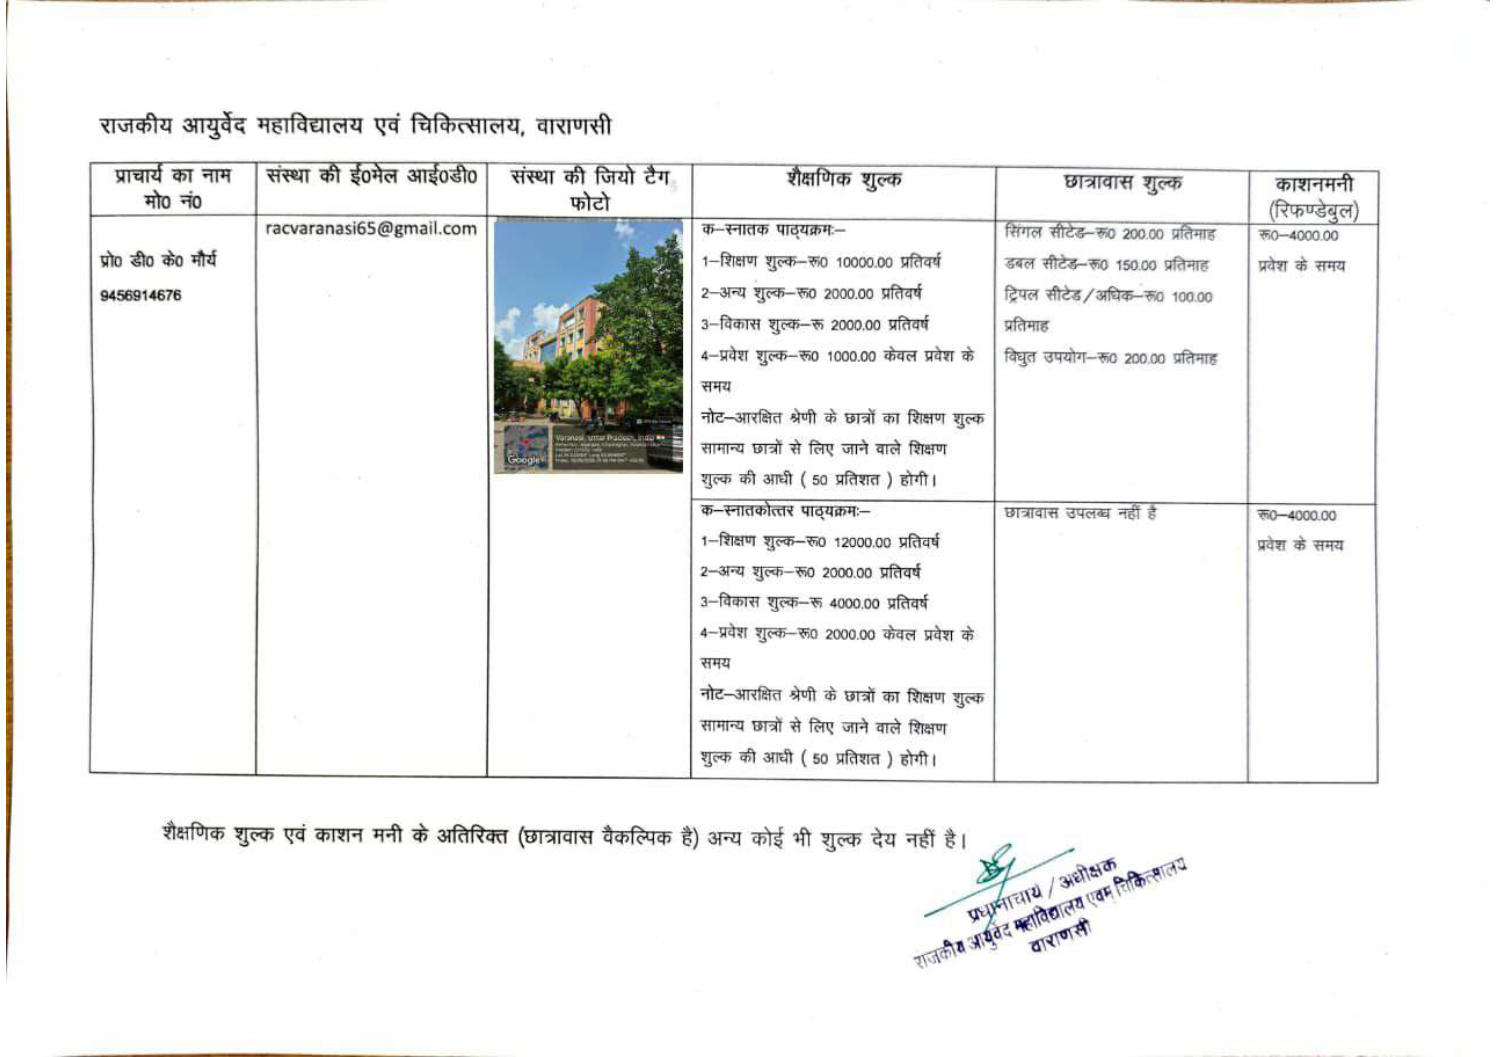 राजकीय आयुर्वेद महाविद्यालय एवं चिकित्सालय, वाराणसी
प्राचार्य का नाम
मो0 नं0
संस्था की ई0मेल आई0डी0
संस्था की जियो टैग
फोटो
शैक्षणिक शुल्क
छात्रावास शुल्क
काशनमनी
(रिफण्डेबुल)
प्रो0 डी0 के0 मौर्य
9456914676
racvaranasi65@gmail.com
Google
Varanasi, Uttar Pradesh, India
क–स्नातक पाठ्यक्रमः–
1–शिक्षण शुल्क–रू0 10000.00 प्रतिवर्ष
2–अन्य शुल्क–रू0 2000.00 प्रतिवर्ष
3–विकास शुल्क–रू 2000.00 प्रतिवर्ष
4–प्रवेश शुल्क–रू0 1000.00 केवल प्रवेश के
समय
नोट–आरक्षित श्रेणी के छात्रों का शिक्षण शुल्क
सामान्य छात्रों से लिए जाने वाले शिक्षण
शुल्क की आधी ( 50 प्रतिशत ) होगी।
सिंगल सीटेड–रू0 200.00 प्रतिमाह
डबल सीटेड–रू0 150.00 प्रतिमाह
ट्रिपल सीटेड/अधिक–रू0 100.00
प्रतिमाह
विधुत उपयोग–रू0 200.00 प्रतिमाह
रू0–4000.00
प्रवेश के समय
क–स्नातकोत्तर पाठ्यक्रमः–
1–शिक्षण शुल्क–रू0 12000.00 प्रतिवर्ष
2–अन्य शुल्क–रू0 2000.00 प्रतिवर्ष
3–विकास शुल्क–रू 4000.00 प्रतिवर्ष
4–प्रवेश शुल्क–रू0 2000.00 केवल प्रवेश के
समय
नोट–आरक्षित श्रेणी के छात्रों का शिक्षण शुल्क
सामान्य छात्रों से लिए जाने वाले शिक्षण
शुल्क की आधी ( 50 प्रतिशत ) होगी।
छात्रावास उपलब्ध नहीं है
रू0–4000.00
प्रवेश के समय
शैक्षणिक शुल्क एवं काशन मनी के अतिरिक्त (छात्रावास वैकल्पिक है) अन्य कोई भी शुल्क देय नहीं है।
प्रधानाचार्य / अधीक्षक
राजकीय आयुर्वेद महाविद्यालय एवम् चिकित्सालय
वाराणसी